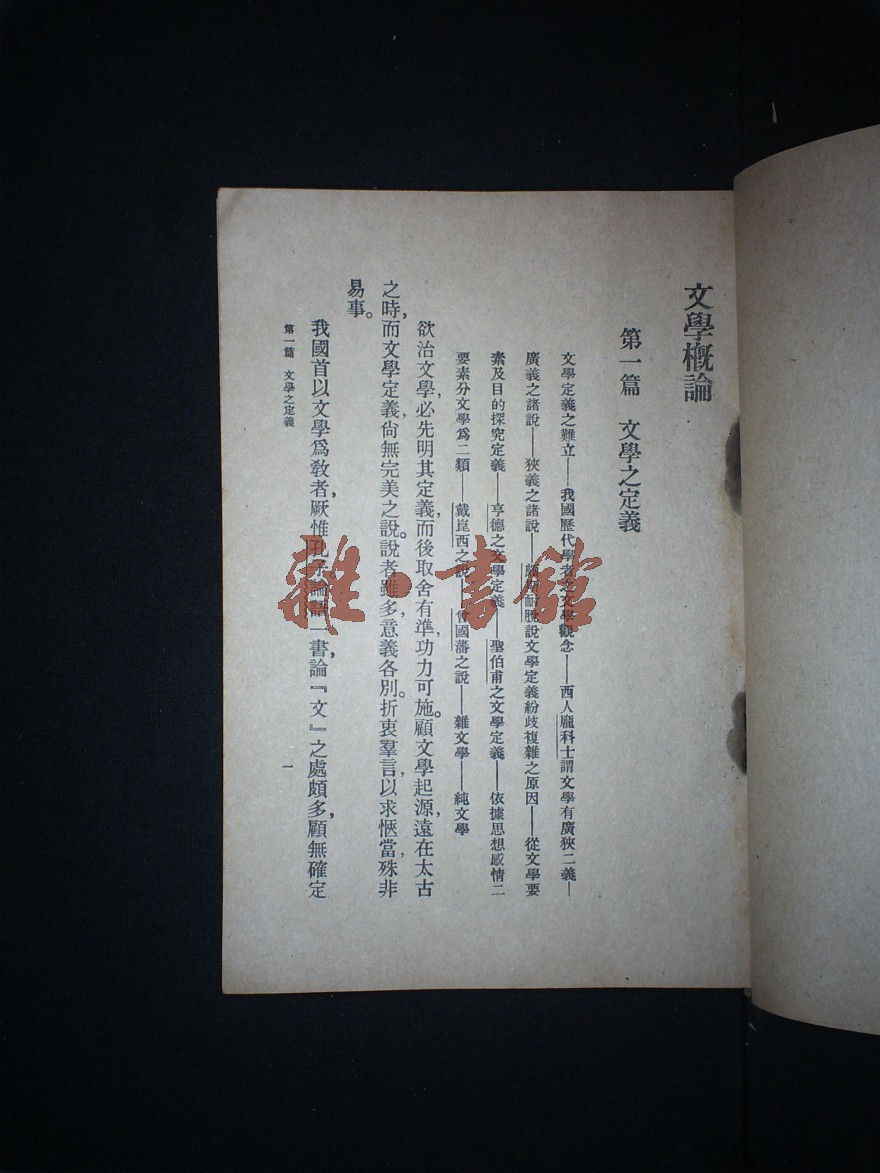 文學概論
第一篇　文學之定義
文學定義之難立——我國歷代學者之文學觀念——西人龐科士謂文學有廣狹二義—
廣義之諸說——狹義之諸說——耐脫說文學定義紛歧複雜之原因——從文學要
素及目的探究定義——亨德之文學定義——聖伯甫之文學定義——依據思想感情二
要素分文學爲二類——戴崑西之說——曾國藩之說——雜文學——純文學
欲治文學，必先明其定義，而後取舍有準，功力可施。顧文學起源，遠在太古
之時，而文學定義，尙無完美之說。說者雖多，意義各別。折衷羣言，以求愜當，殊非
易事。
我國首以文學爲敎者，厥惟孔子。論語一書，論『文』之處頗多，顧無確定
第一篇　文學之定義
一
雜·書館